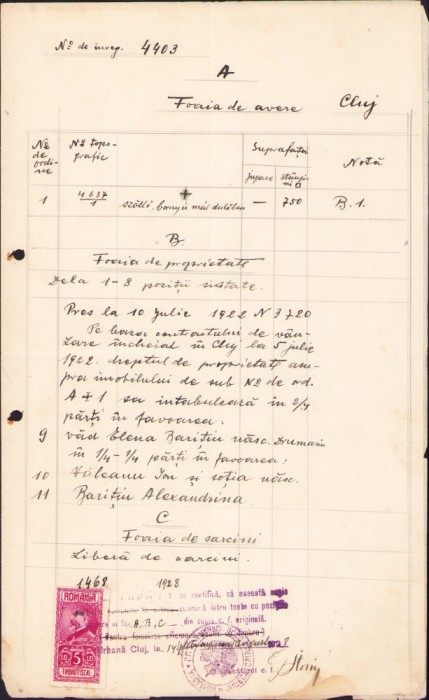 No de inreg. 4403
A
Foaia de avere Cluj
No de ordine
No topografic
Suprafața
jugăre
stânjini □
Notă
1 4637/1 szöllő, — 750 B. 1.
B.
Foaia de proprietate
Dela 1-8 poziții sistate.
Pres la 10 Julie 1922 N 3720
Pe baza contractului de vân-
zare încheiat în Cluj la 5 julie
1922. dreptul de proprietate asu-
pra imobilului de sub No de ord.
A + 1 sa intabulează în 2/4
părți în favoarea.
9 văd Elena Barițiu născ.
în 1/4-1/4 părți în favoarea:
10 Văleanu Jon și soția născ.
11 Barițiu Alexandrina
C
Foaia de sarcini
Liberă de sarcini.
1468 1928
se certifică, că această
toate cu
A, B, C din c. f. originală.
Cluj, la 14
ROMANIA
5 LEI
TIMBRU FISCAL